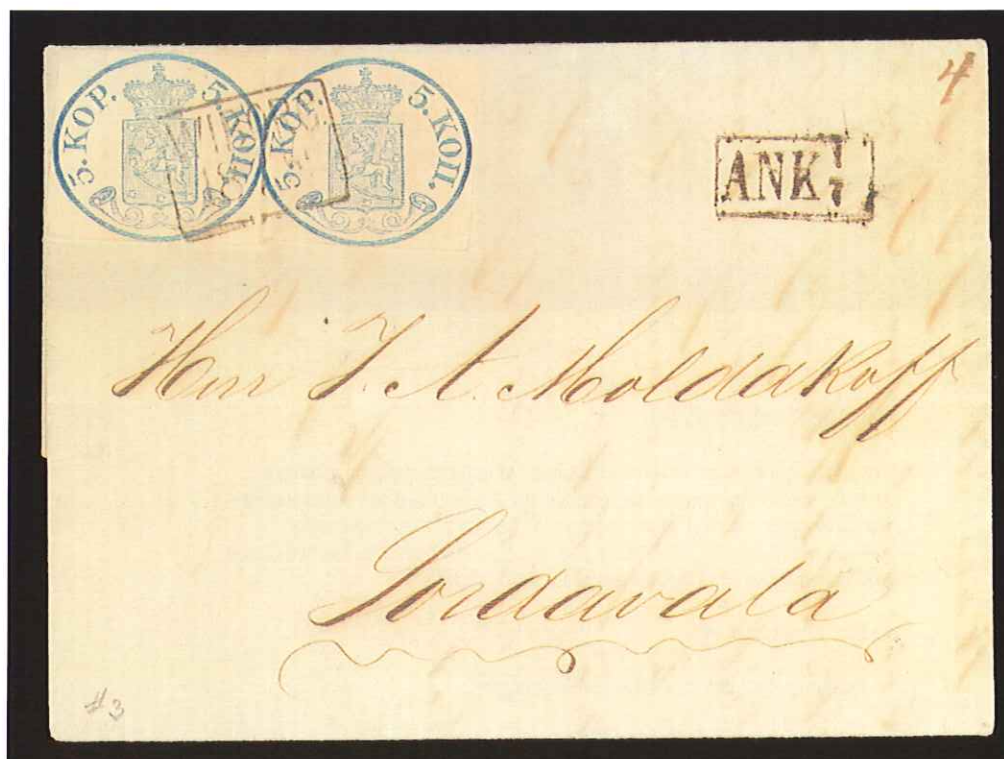 5. KOP. 5. КОП. 5. KOP. 5. КОП.
4
ANK 1/7
Herr J. A. Moldakoff
Sordavala
#3